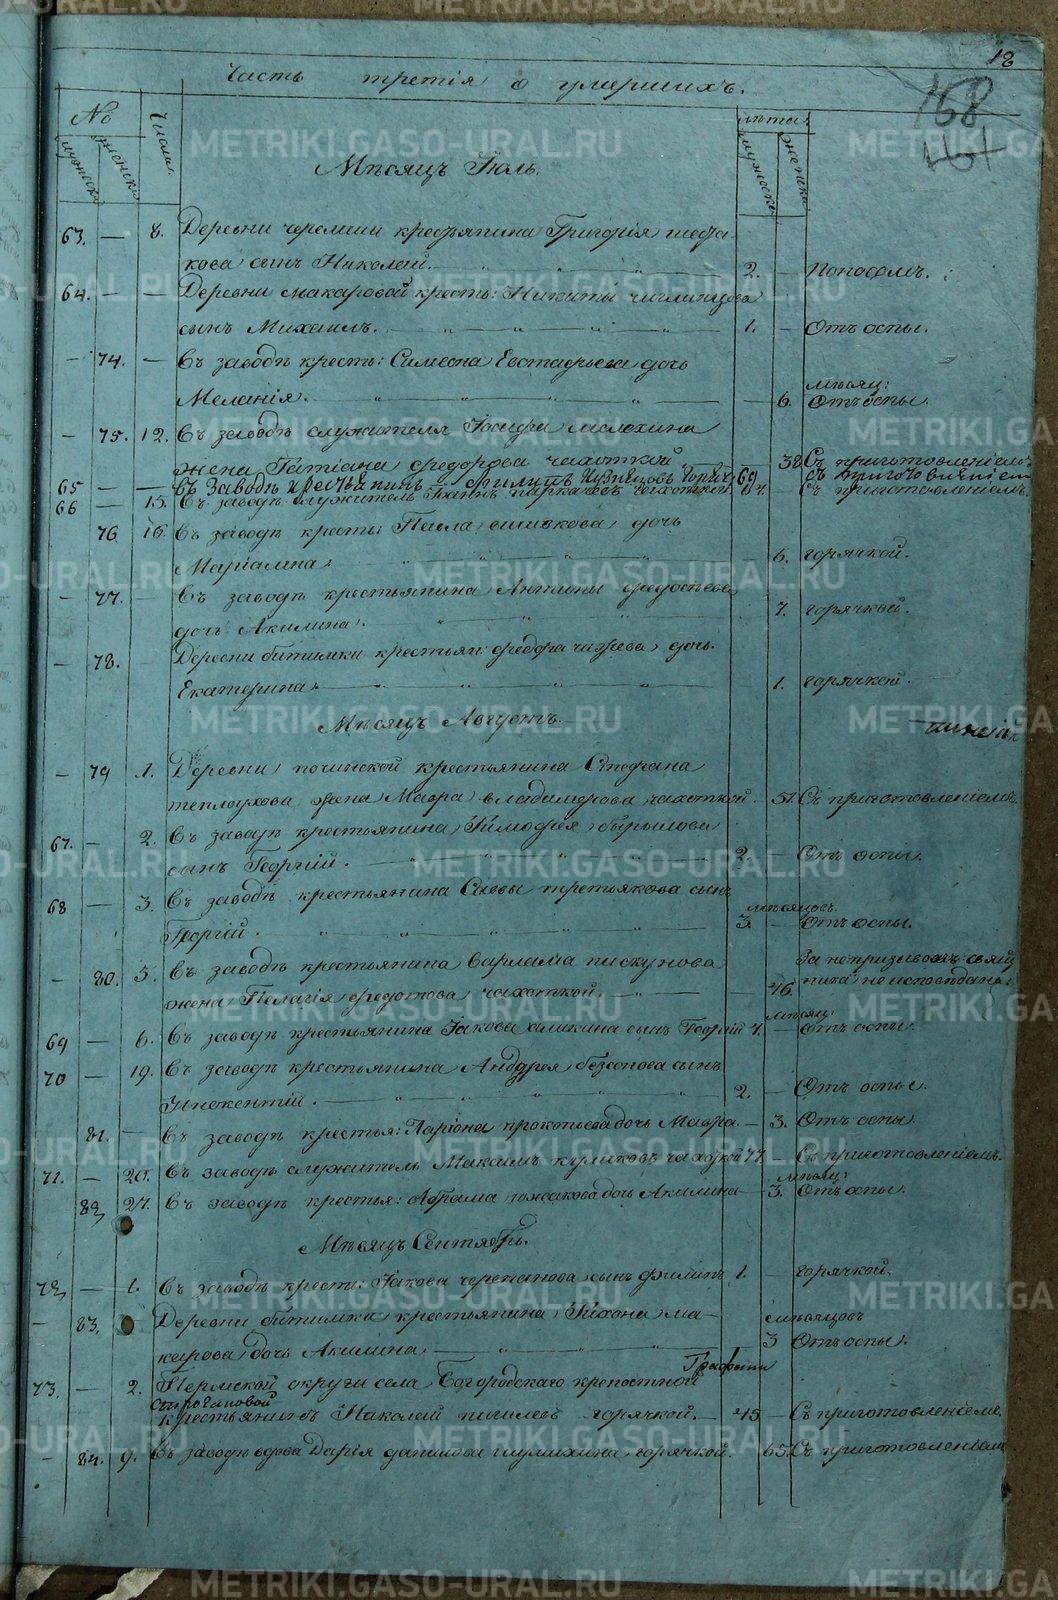 18
Часть третія о умершихъ.
168
№ Числа. лѣта.
мужеска женска мужеска женска
Мѣсяцъ Іюль.
63. — 8. Деревни черемши крестьянина Григорія
сынъ Николай. — 2. — Поносомъ.
64. — — Деревни Макаровой кресть: Никиты
сынъ Михаилъ. — 1. — Отъ оспы.
— 74. — Въ заводѣ кресть: Симеона Евстафьева дочь
мѣсяц:
Меланія. — 6. Отъ оспы.
— 75. 12. Въ заводѣ служителя Іосифа малохина
жена Татіана федорова чахоткой 38 Съ приготовленіемъ
65 — — Въ Заводѣ крестьянинъ Филипъ Кузнецовъ 60 Съ приготовленіем
66 — 15. Въ заводѣ служитель чахоткой Съ приготовленіемъ.
76 16. Въ заводѣ кресть: Павла сливкова дочь
Маріамна — 6. горячкой.
— 77. — Въ заводѣ крестьянина Антипы федосѣева
дочь Акилина. 7. горячкой.
— 78. Деревни битимки крестьян: федора чижева дочь.
Екатерина. — 1. горячкой.
Мѣсяцъ Августъ.
— 79 1. Деревни починской крестьянина Стефана
теплоухова жена Мавра владимерова чахоткой. — 51. Съ приготовленіемъ
67. — 2. Въ заводѣ крестьянина Тимофея бырылова
сынъ Георгій. — 2. — Отъ оспы.
68 — 3. Въ заводѣ крестьянина Саввы третьякова сынъ
мѣсяцовъ.
Георгій. 3. — Отъ оспы.
— 80. 5. Въ заводѣ крестьянина Варлама пискунова За непризывомъ свящ
жена Пелагія федотова чахоткой. — 46. ника не исповѣдана:
мѣсяц:
69 — 6. Въ заводѣ крестьянина Іакова аликина сынъ Георгій 7. — Отъ оспы.
70 — 19. Въ заводѣ крестьянина Андрея безсонова сынъ
Инокентій. — 2. — Отъ оспы.
81. — Въ заводѣ крестья: Ларіона прокопьева дочь Мавра. — 3. Отъ оспы.
71. — 20. Въ заводѣ служитель Максимъ куликовъ чахоткой 77. Съ приготовленіемъ.
мѣсяц:
82 27. Въ заводѣ крестья: Абрама южакова дочь Акилина 3. Отъ оспы.
Мѣсяцъ Сентябрь.
72 — 1. Въ заводѣ кресть: Іакова черепанова сынъ филипъ 1. — горячкой.
— 83. Деревни битимки крестьянина Тихона ма- мѣсяцовъ
карова дочь Акилина — 3 Отъ оспы.
Графини
73. — 2. Пермской округи села Богородскаго крепостной
Строгановой
крестьянинъ Николай горячкой. — 45 — Съ приготовленіем.
— 84. 9. Въ заводѣ вдова Дарія данилова глумихина горячкой. 65. Съ приготовленіем